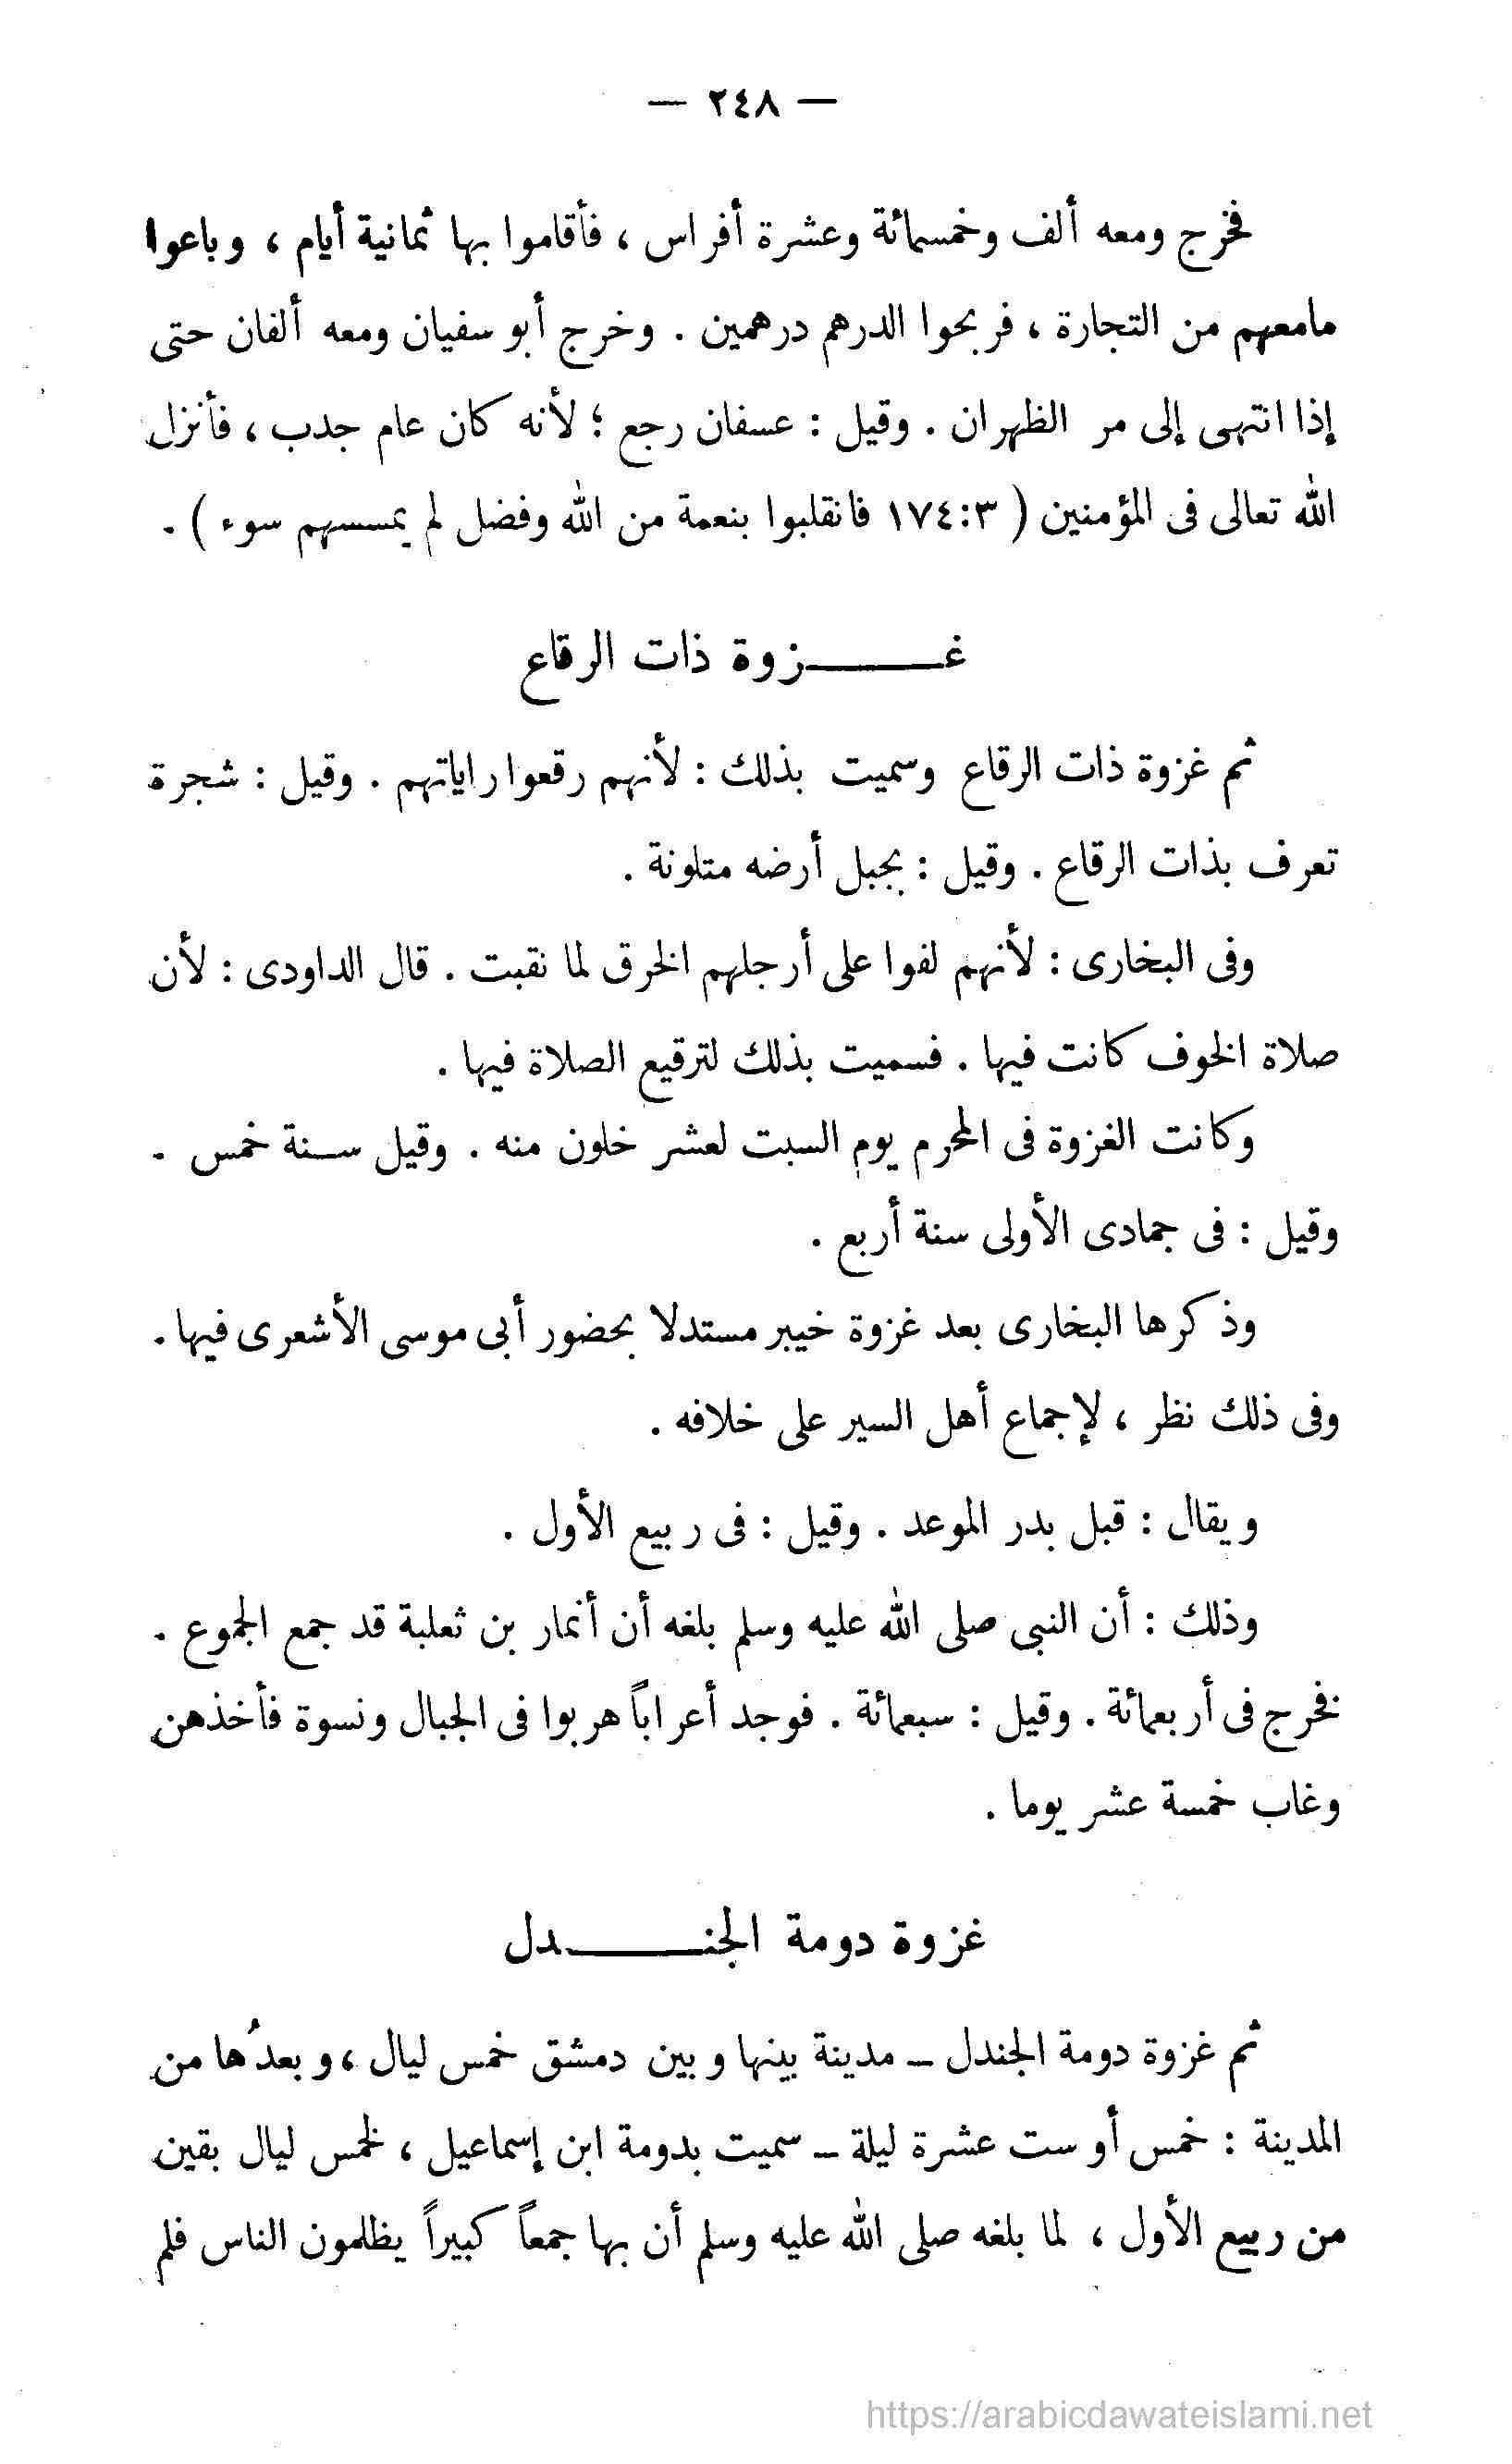 — ٢٤٨ —
فخرج ومعه ألف وخمسمائة وعشرة أفراس ، فأقاموا بها ثمانية أيام ، وباعوا
مامعهم من التجارة ، فربحوا الدرهم درهمين . وخرج أبو سفيان ومعه ألفان حتى
إذا انتهى إلى مر الظهران . وقيل : عسفان رجع ؛ لأنه كان عام جدب ، فأنزل
الله تعالى فى المؤمنين ( ٣:١٧٤ فانقلبوا بنعمة من الله وفضل لم يمسسهم سوء ) .
غـــــزوة ذات الرقاع
ثم غزوة ذات الرقاع وسميت بذلك : لأنهم رقعوا راياتهم . وقيل : شجرة
تعرف بذات الرقاع . وقيل : بجبل أرضه متلونة .
وفى البخارى : لأنهم لفوا على أرجلهم الخرق لما نقبت . قال الداودى : لأن
صلاة الخوف كانت فيها . فسميت بذلك لترقيع الصلاة فيها .
وكانت الغزوة فى المحرم يوم السبت لعشر خلون منه . وقيل ســنة خمس .
وقيل : فى جمادى الأولى سنة أربع .
وذكرها البخارى بعد غزوة خيبر مستدلا بحضور أبى موسى الأشعرى فيها .
وفى ذلك نظر ، لإجماع أهل السير على خلافه .
ويقال : قبل بدر الموعد . وقيل : فى ربيع الأول .
وذلك : أن النبى صلى الله عليه وسلم بلغه أن أنمار بن ثعلبة قد جمع الجموع .
فخرج فى أربعمائة . وقيل : سبعمائة . فوجد أعراباً هربوا فى الجبال ونسوة فأخذهن
وغاب خمسة عشر يوما .
غزوة دومة الجنـــــدل
ثم غزوة دومة الجندل – مدينة بينها وبين دمشق خمس ليال ، وبعدُها من
المدينة : خمس أو ست عشرة ليلة – سميت بدومة ابن إسماعيل ، لخمس ليال بقين
من ربيع الأول ، لما بلغه صلى الله عليه وسلم أن بها جمعاً كبيراً يظلمون الناس فلم
https://arabicdawateislami.net